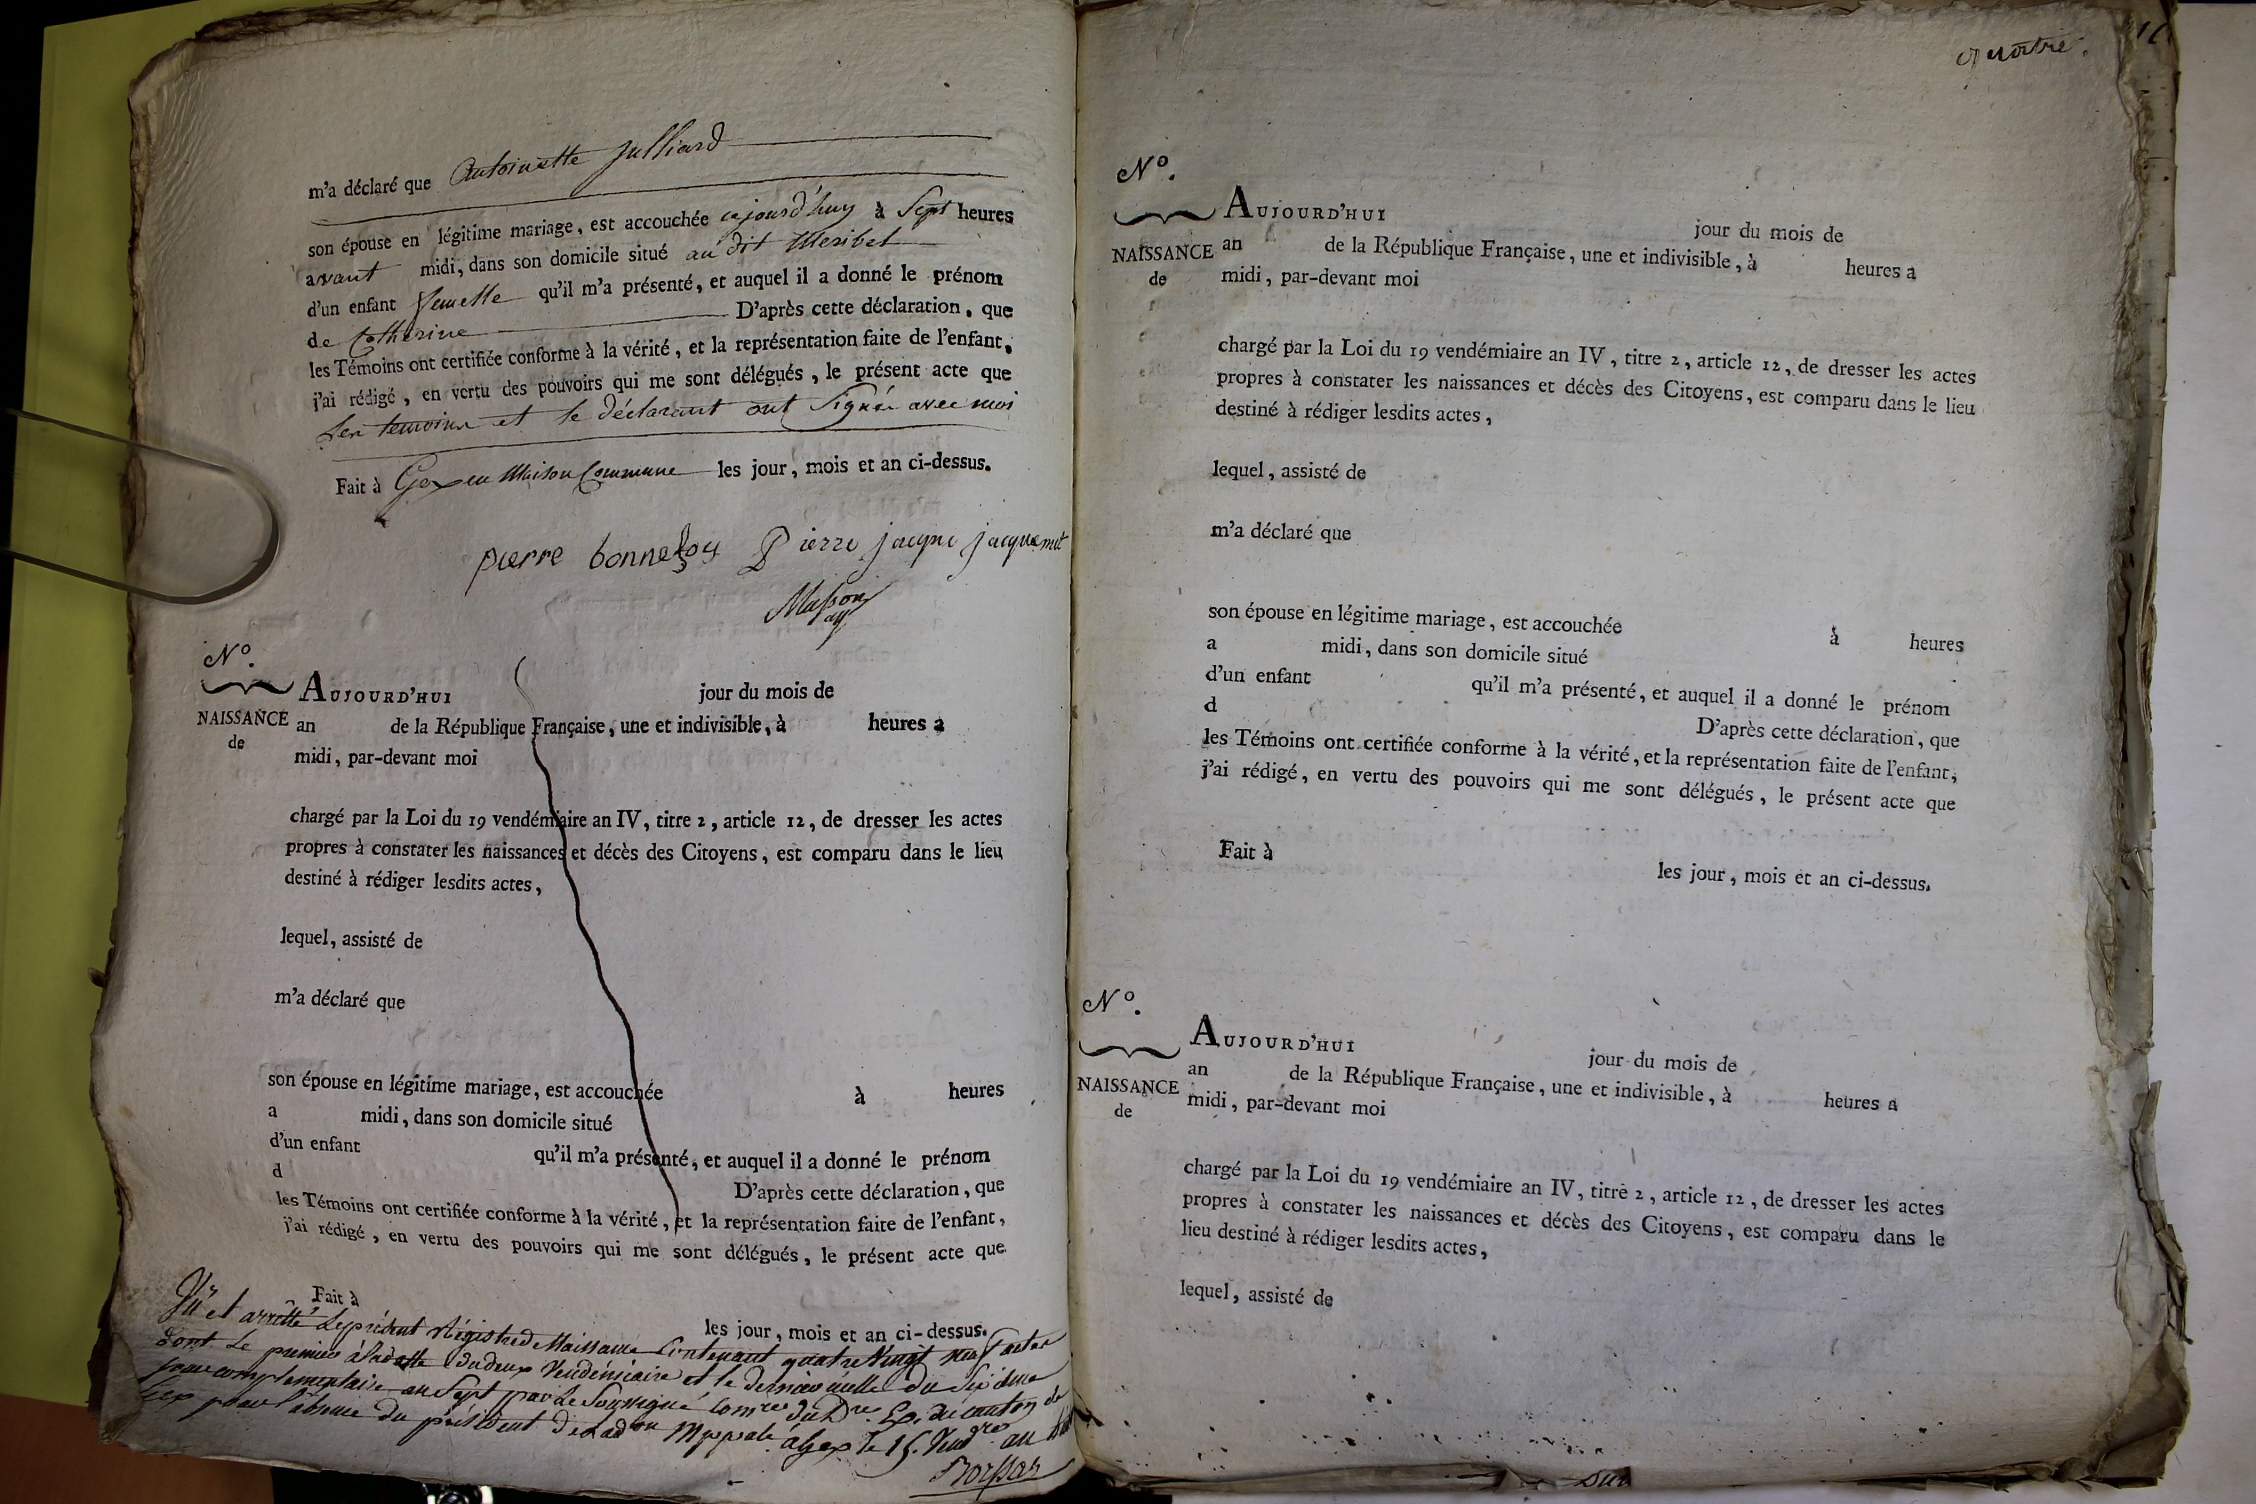 m'a déclaré que Antoinette Julliard
son épouse en légitime mariage, est accouchée cejourd'huy à Sept heures
avant midi, dans son domicile situé au dit Meribel
d'un enfant femelle qu'il m'a présenté, et auquel il a donné le prénom
de Catherine D'après cette déclaration, que
les Témoins ont certifiée conforme à la vérité, et la représentation faite de l'enfant,
j'ai rédigé, en vertu des pouvoirs qui me sont délégués, le présent acte que
Les temoins et le déclarant ont Signés avec moi
Fait à Gex en Maison Commune les jour, mois et an ci-dessus.
pierre bonnefoy Pierre jacque jacquemet
Masson
Nº.
AUJOURD'HUI jour du mois de
NAISSANCE an de la République Française, une et indivisible, à heures a
de midi, par-devant moi
chargé par la Loi du 19 vendémiaire an IV, titre 2, article 12, de dresser les actes
propres à constater les naissances et décès des Citoyens, est comparu dans le lieu
destiné à rédiger lesdits actes,
lequel, assisté de
m'a déclaré que
son épouse en légitime mariage, est accouchée à heures
a midi, dans son domicile situé
d'un enfant qu'il m'a présenté, et auquel il a donné le prénom
d D'après cette déclaration, que
les Témoins ont certifiée conforme à la vérité, et la représentation faite de l'enfant,
j'ai rédigé, en vertu des pouvoirs qui me sont délégués, le présent acte que
Fait à les jour, mois et an ci-dessus.
Vu et arrêtté Le présent Régistre de Naissance Contenant quatre Vingt neuf actes
dont Le premier à la datte du deux Vendémiaire et le dernier à celle du Sixième
jour complementaire an Sept par Le Soussigné Comre du Dre Ex. du canton de
Gex pour l'absence du président de L'adon Mpale à Gex le 15. Vendre an huit
Nº.
AUJOURD'HUI jour du mois de
NAISSANCE an de la République Française, une et indivisible, à heures a
de midi, par-devant moi
chargé par la Loi du 19 vendémiaire an IV, titre 2, article 12, de dresser les actes
propres à constater les naissances et décès des Citoyens, est comparu dans le lieu
destiné à rédiger lesdits actes,
lequel, assisté de
m'a déclaré que
son épouse en légitime mariage, est accouchée à heures
a midi, dans son domicile situé
d'un enfant qu'il m'a présenté, et auquel il a donné le prénom
d D'après cette déclaration, que
les Témoins ont certifiée conforme à la vérité, et la représentation faite de l'enfant,
j'ai rédigé, en vertu des pouvoirs qui me sont délégués, le présent acte que
Fait à les jour, mois et an ci-dessus.
Nº.
AUJOURD'HUI jour du mois de
NAISSANCE an de la République Française, une et indivisible, à heures a
de midi, par-devant moi
chargé par la Loi du 19 vendémiaire an IV, titre 2, article 12, de dresser les actes
propres à constater les naissances et décès des Citoyens, est comparu dans le
lieu destiné à rédiger lesdits actes,
lequel, assisté de